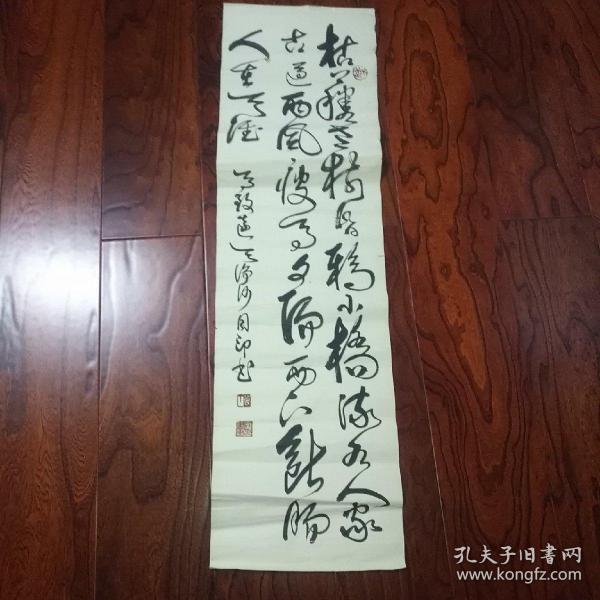 枯藤老树昏鸦小橋流水人家
古道西風瘦马夕陽西下断腸
人在天涯
马致遠天净沙 国印书
孔夫子旧书网
www.kongfz.com